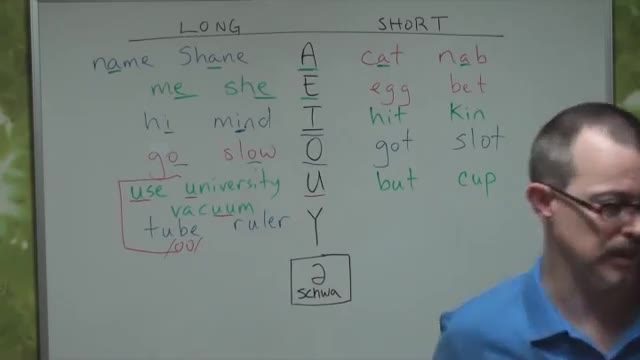 LONG SHORT
name Shane A cat nab
me she E egg bet
hi mind I hit Kin
go slow O got slot
use university U but cup
vacuum
tube ruler Y
/oo/
ə
schwa